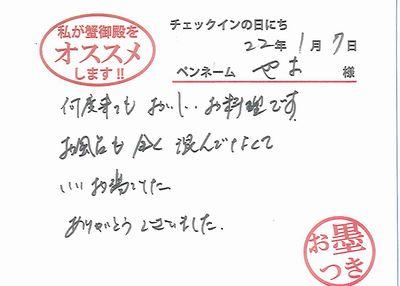 私が蟹御殿を
オススメ
します!!
チェックインの日にち
22年1月7日
ペンネーム やお 様
何度来ても おいしいお料理です
お風呂も 全く 混んでなくて
いいお湯でした
ありがとうございました.
お墨
つき